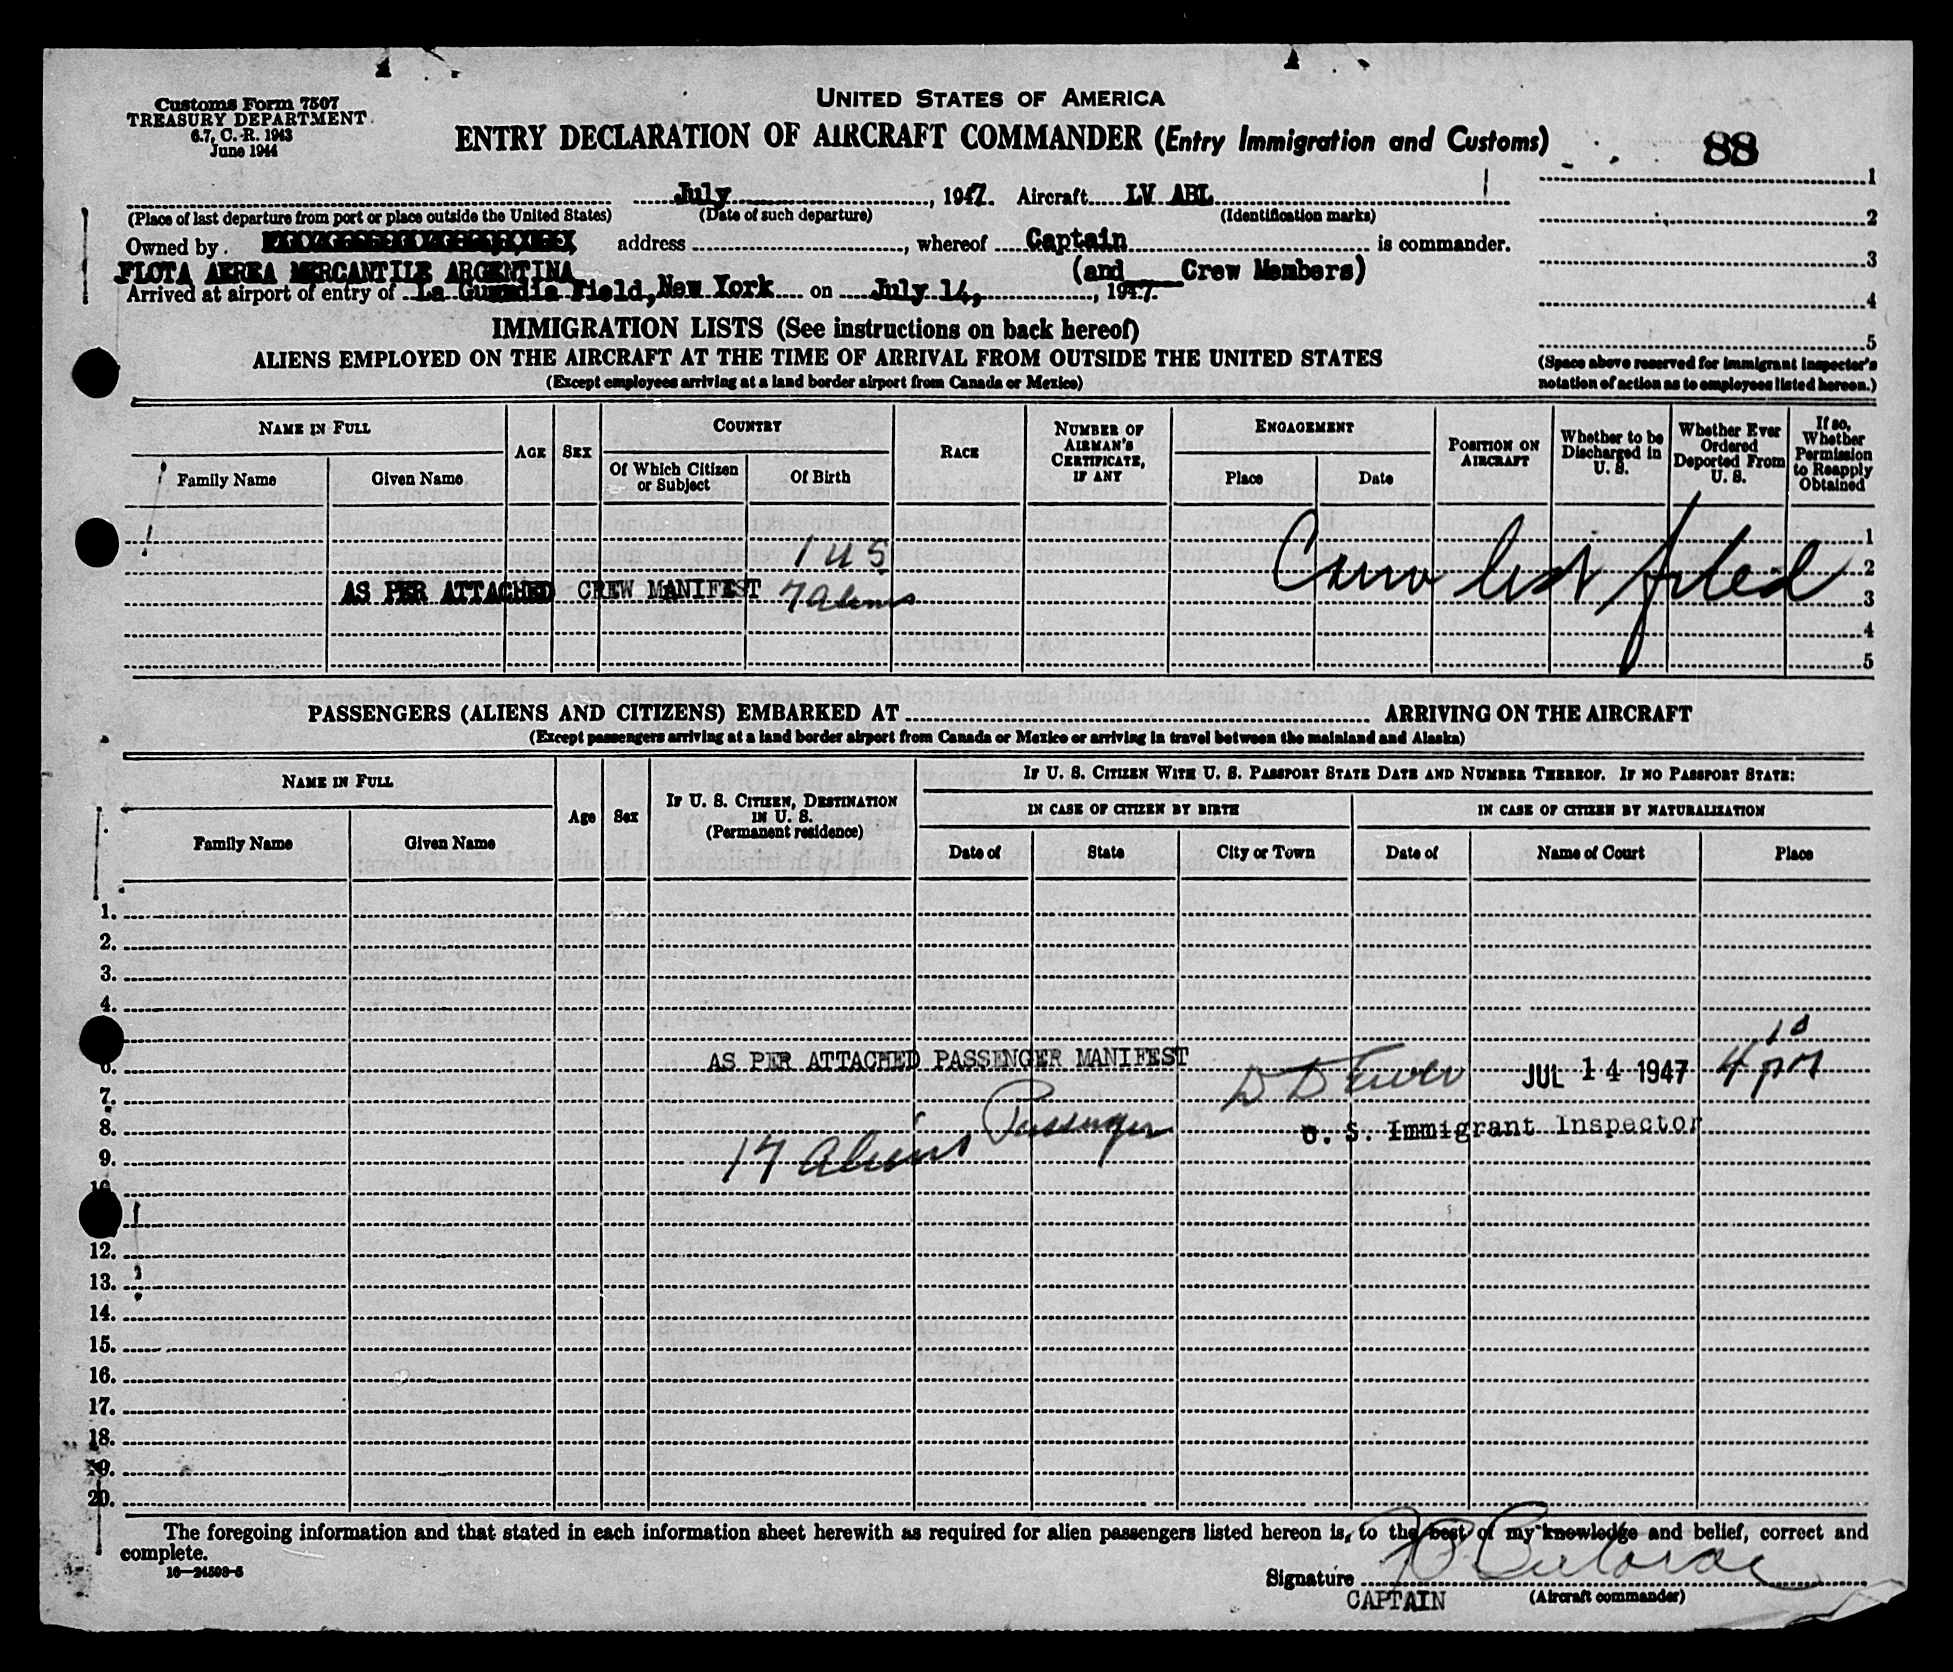 Customs Form 7507
TREASURY DEPARTMENT
6.7, C. R. 1943
June 1944
UNITED STATES OF AMERICA
ENTRY DECLARATION OF AIRCRAFT COMMANDER (Entry Immigration and Customs)
88
July, 1947. Aircraft LV ABL
(Place of last departure from port or place outside the United States) (Date of such departure) (Identification marks)
Owned by address , whereof Captain is commander.
FLOTA AEREA MERCANTILE ARGENTINA (and Crew Members)
Arrived at airport of entry of La Guardia Field, New York on July 14, , 1947.
1
2
3
4
5
(Space above reserved for immigrant inspector's
notation of action as to employees listed hereon.)
IMMIGRATION LISTS (See instructions on back hereof)
ALIENS EMPLOYED ON THE AIRCRAFT AT THE TIME OF ARRIVAL FROM OUTSIDE THE UNITED STATES
(Except employees arriving at a land border airport from Canada or Mexico)
NAME IN FULL
Family Name Given Name
AGE SEX
COUNTRY
Of Which Citizen or Subject Of Birth
RACE
NUMBER OF AIRMAN'S CERTIFICATE, IF ANY
ENGAGEMENT
Place Date
POSITION ON AIRCRAFT
Whether to be Discharged in U. S.
Whether Ever Ordered Deported From U. S.
If so, Whether Permission to Reapply Obtained
1
1 US 2
AS PER ATTACHED CREW MANIFEST 7 Aliens Crew list filed 3
4
5
PASSENGERS (ALIENS AND CITIZENS) EMBARKED AT ARRIVING ON THE AIRCRAFT
(Except passengers arriving at a land border airport from Canada or Mexico or arriving in travel between the mainland and Alaska)
NAME IN FULL
Family Name Given Name
Age Sex
IF U. S. CITIZEN, DESTINATION IN U. S. (Permanent residence)
IF U. S. CITIZEN WITH U. S. PASSPORT STATE DATE AND NUMBER THEREOF. IF NO PASSPORT STATE:
IN CASE OF CITIZEN BY BIRTH IN CASE OF CITIZEN BY NATURALIZATION
Date of State City or Town Date of Name of Court Place
1.
2.
3.
4.
6. AS PER ATTACHED PASSENGER MANIFEST JUL 14 1947 4 10 pm
7.
8. Passenger U. S. Immigrant Inspector
9. 17 aliens
10
12.
13.
14.
15.
16.
17.
18.
19.
20.
The foregoing information and that stated in each information sheet herewith as required for alien passengers listed hereon is, to the best of my knowledge and belief, correct and
complete.
16—24508-5
Signature
CAPTAIN (Aircraft commander)